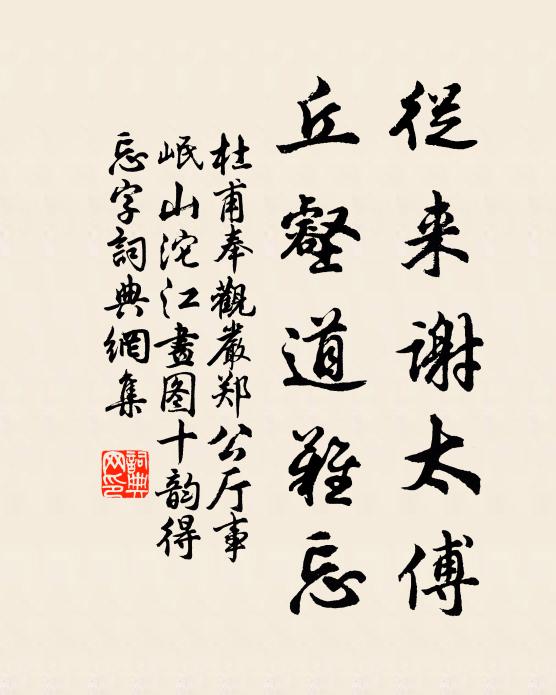 從来谢太傅
丘壑道難忘
杜甫奉觀嚴郑公厅事
岷山沱江畫图十韵得
忘字詞典網集
詞典
网印